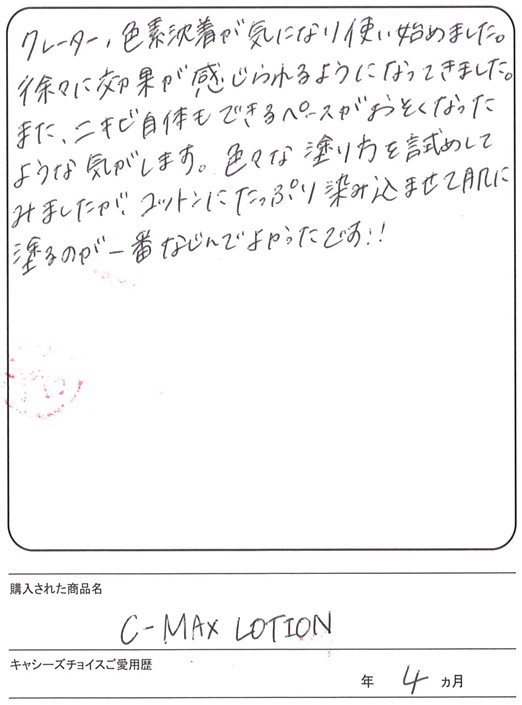 クレーター、色素沈着が気になり使い始めました。
徐々に効果が感じられるようになってきました。
また、ニキビ自体もできるペースがおそくなった
ような気がします。色々な塗り方を試めして
みましたが、コットンにたっぷり染み込ませて肌に
塗るのが一番なじんでよかったです!!
購入された商品名
C-MAX LOTION
キャシーズチョイスご愛用歴
年 4 ヵ月